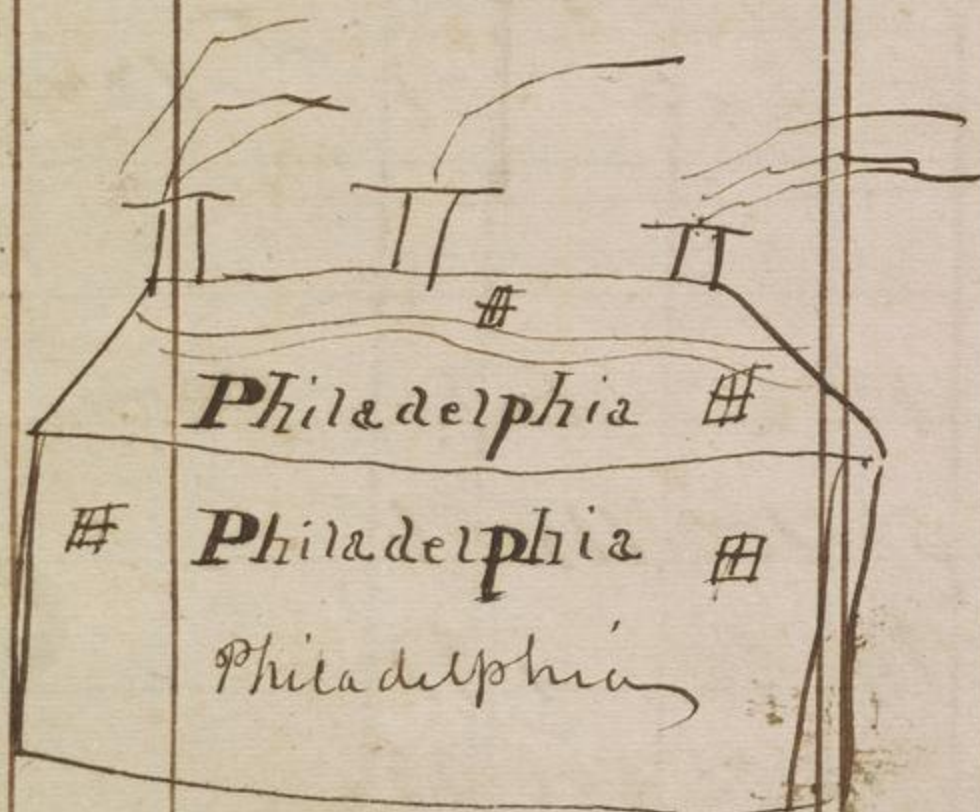 Philadelphia
Philadelphia
Philadelphia